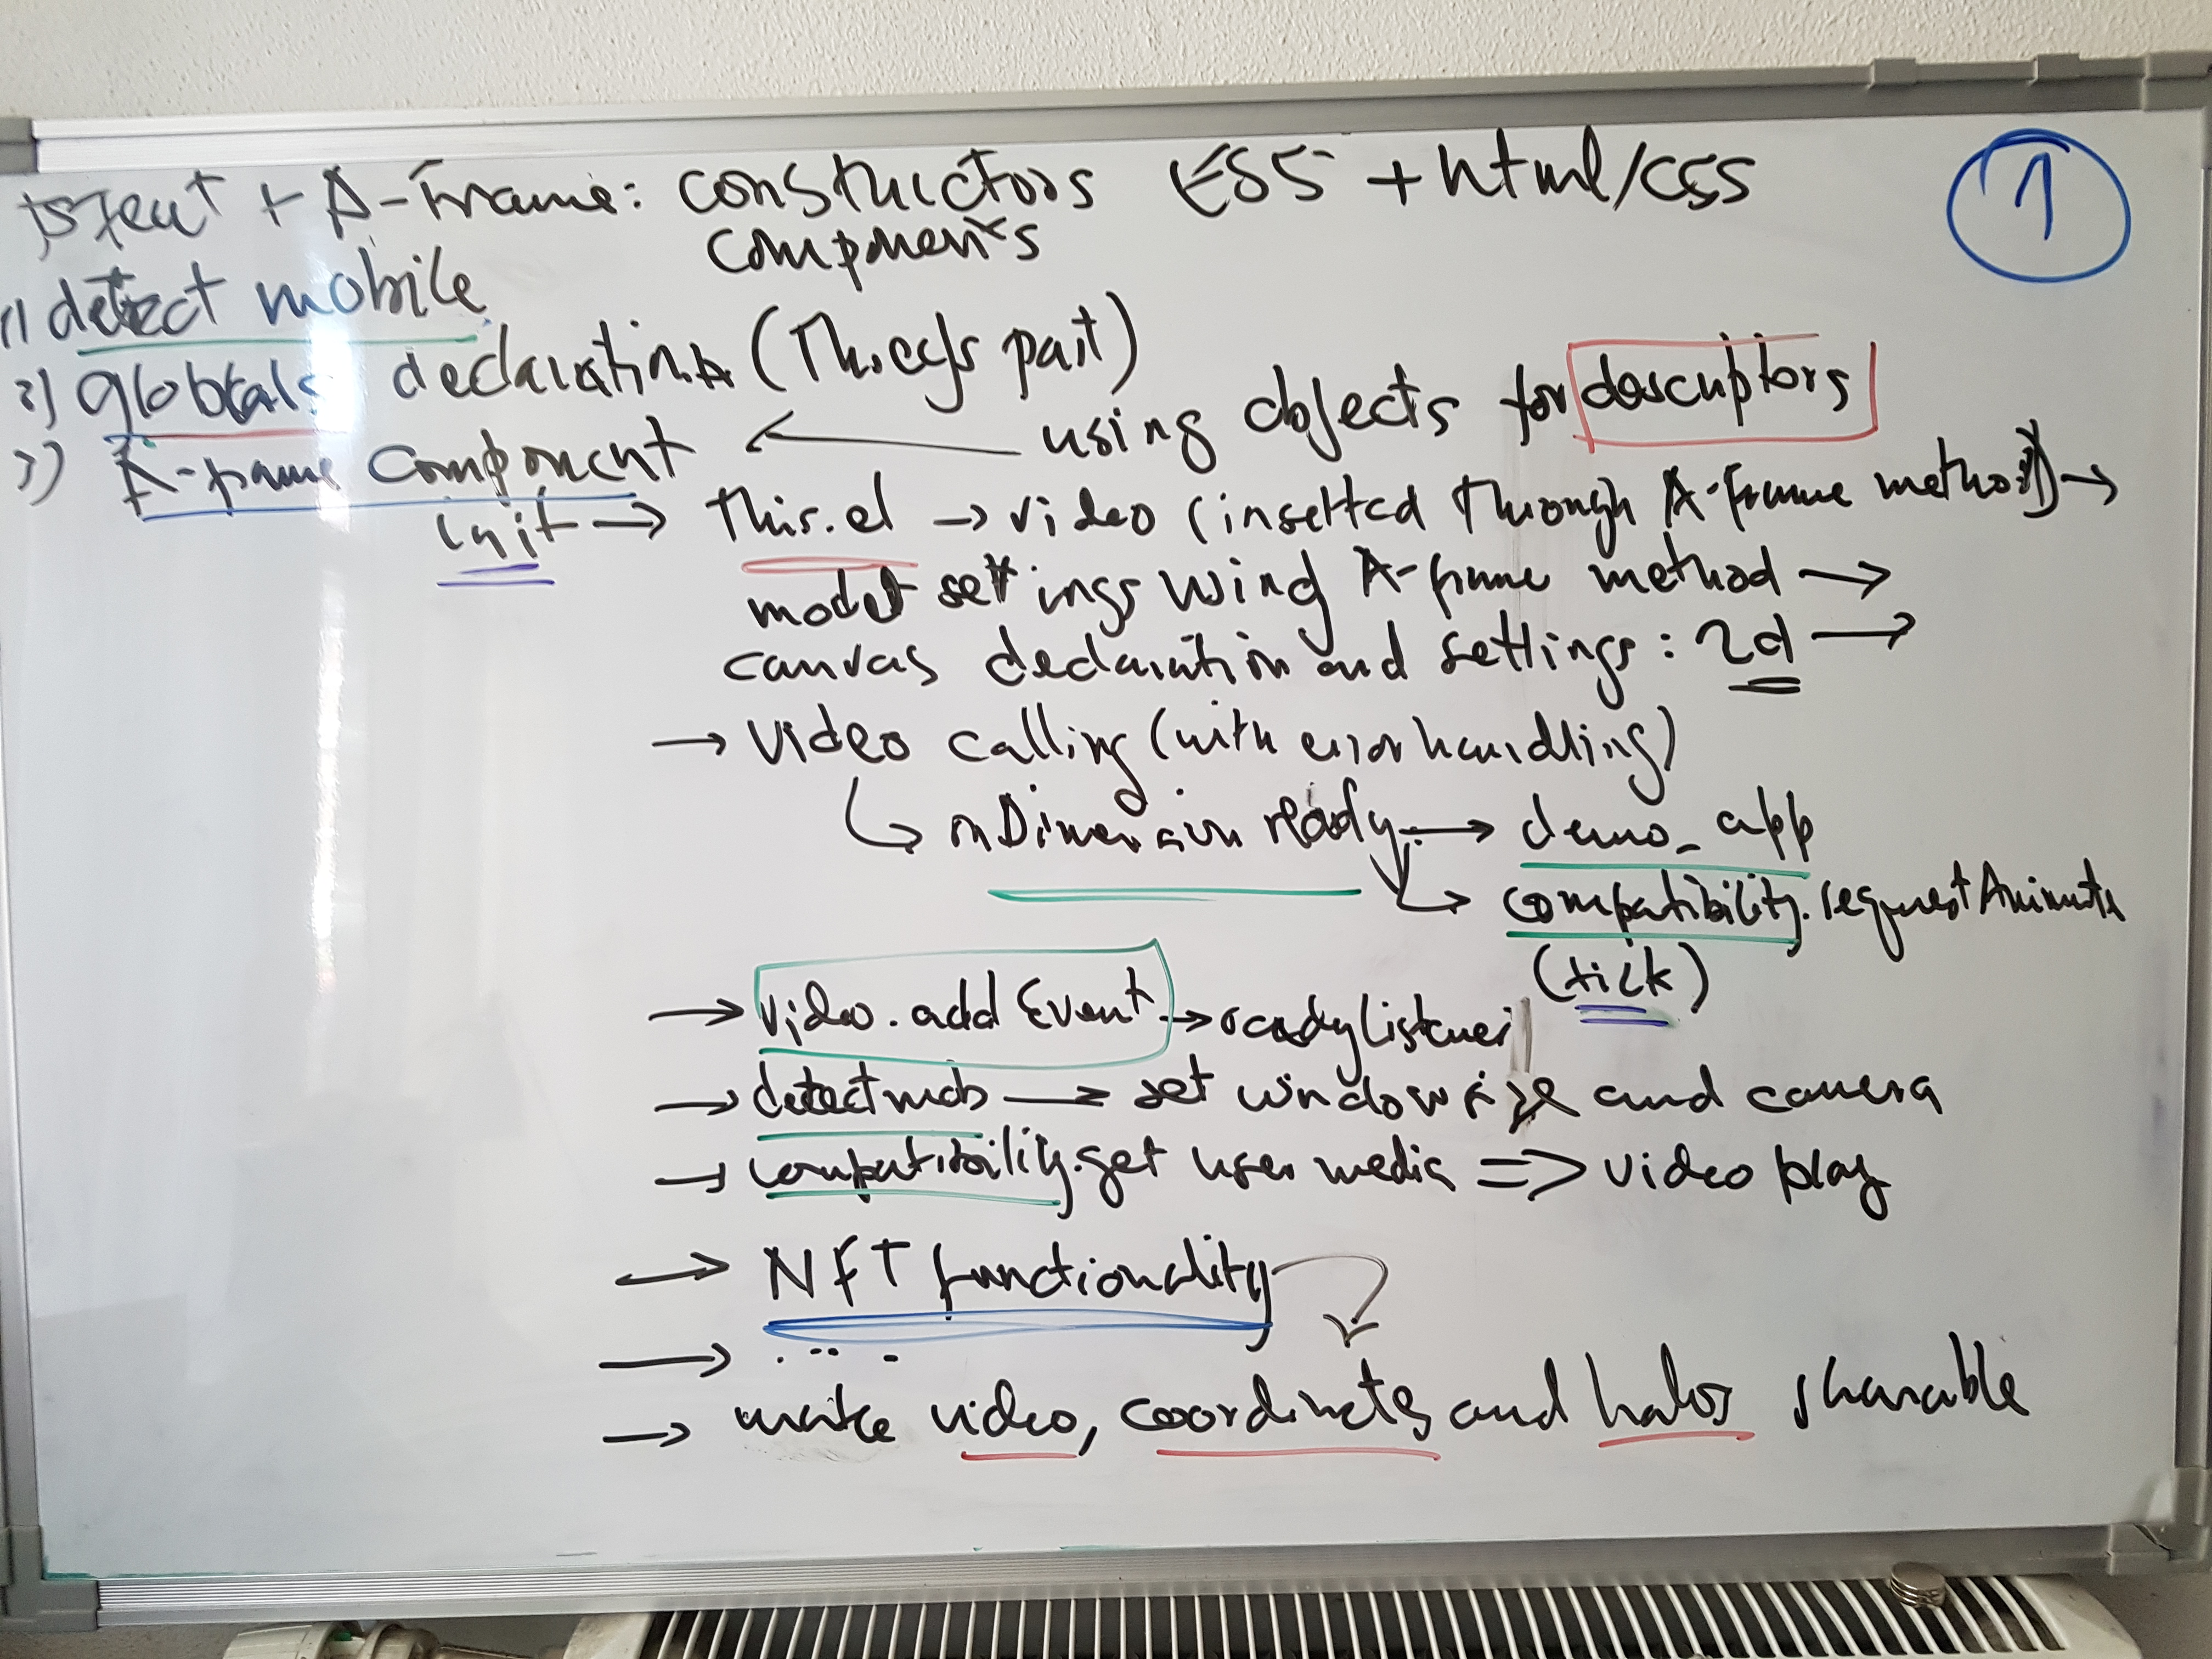 jsfeat + A-Frame: constructors ES5 + html/css
components
1
1) detect mobile
2) globals declarations (Threejs part)
3) A-frame component ← using objects for descriptors
init → this.el → video (inserted through A-Frame method) →
model settings using A-frame method →
canvas declaration and settings: 2d →
→ video calling (with error handling)
onDimension ready → demo_app
compatibility.requestAnimate
(tick)
→ video.addEvent → readylistener
→ detectmob → set window size and camera
→ compatibility.get user media => video play
→ NFT functionality
→ ....
→ make video, coordinates and halos sharable